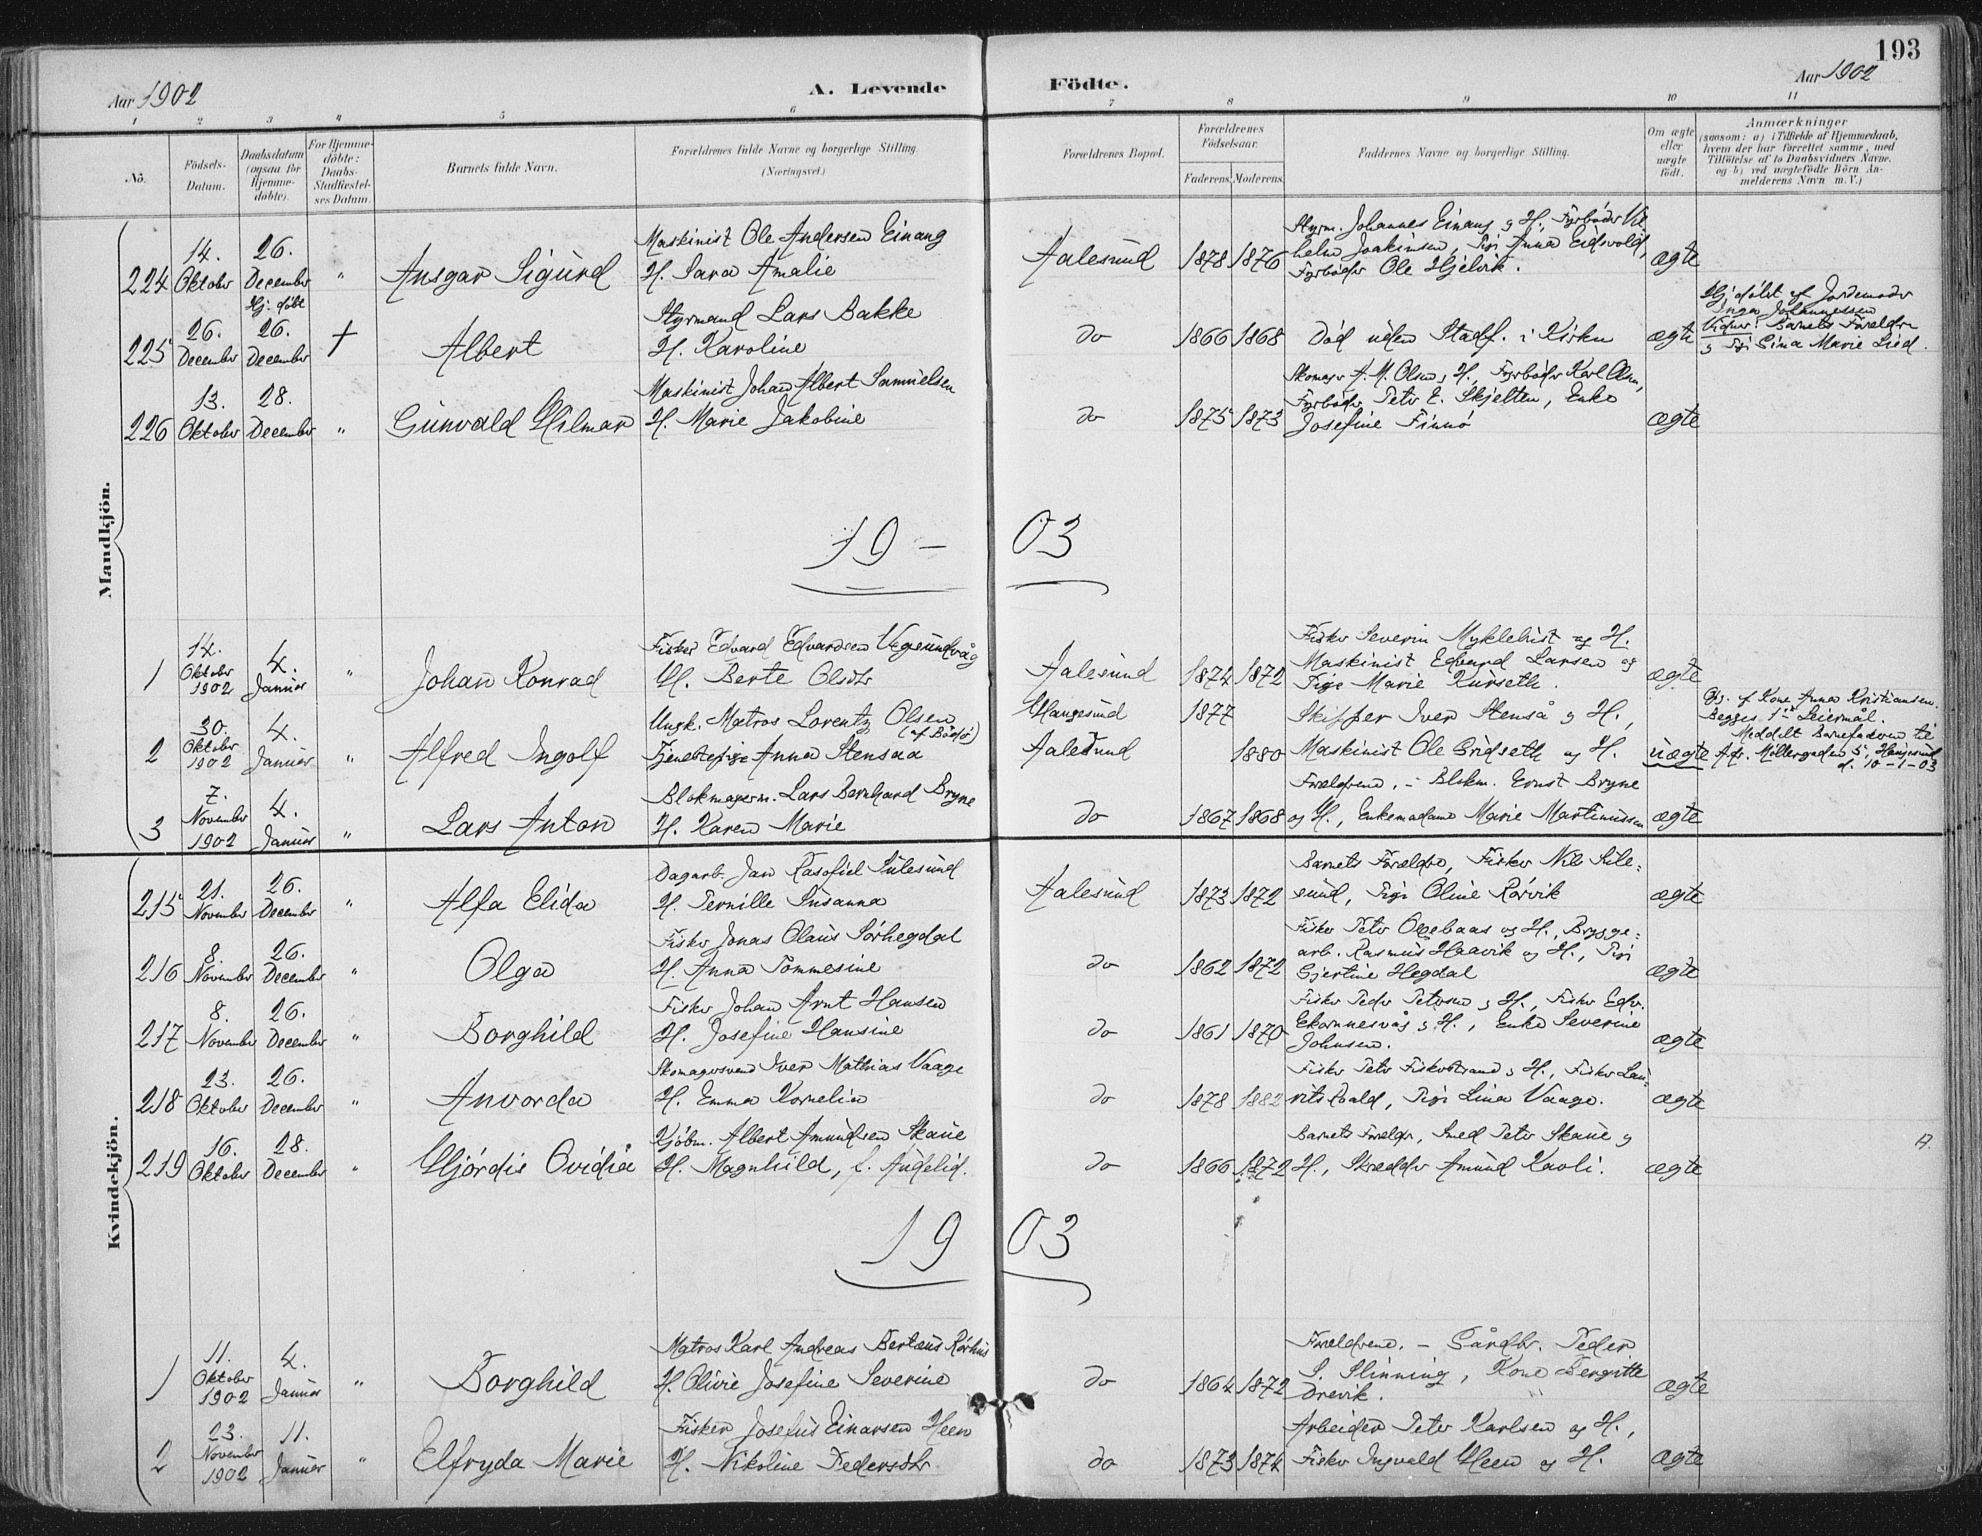 193
Aar 1902
A. Levende Födte.
Aar 1902
1 2 3 4 5 6 7 8 9 10 11
No.
Födsels-Datum.
Daabsdatum (ogsaa for Hjemme-döbte).
For Hjemme-döbte: Daabs-Stadfæstel-ses Datum.
Barnets fulde Navn.
Forældrenes fulde Navne og borgerlige Stilling.
(Næringsvei.)
Forældrenes Bopæl.
Forældrenes Födselsaar.
Faderens. Moderens.
Faddernes Navne og borgerlige Stilling.
Om ægte eller uægte födt.
Anmærkninger
(saasom: a) i Tilfælde af Hjemmedaab, hvem der har forrettet samme, med Tilföielse af to Daabsvidners Navne. og b) ved uægtefödte Börn An-melderens Navn m. V.)
Mandkjön.
224 14. Oktober 26. December " Ansgar Sigurd
Maskinist Ole Andersen Einang
H. Sara Amalie
Aalesund 1878 1876
Styrm. Johannes Einang og H., Fyrbøder Vil-
helm Joakimsen, Pige Anna Eidsvold,
Fyrbøder Ole Hjelvik.
ægte
225 26. December Hj. døbt 26. December + Albert
Styrmand Lars Bakke
H. Karoline
do 1866 1868
Død uden Stadf. i Kirken
ægte
Hj. døbt af Jordemoder
Inga Johannessen
Vidner: Barnets Forældre
og Pige Gina Marie Lied.
226 13. Oktober 28. December " Gunvald Hilmar
Maskinist Johan Albert Samuelsen
H. Marie Jakobine
do 1875 1873
Skomager A. M. Olsen og H., Fyrbøder Karl Olsen,
Fyrbøder Peter E. Skjelten, Enke
Josefine Finnø
ægte
19 - 03
1 14. Oktober 1902 4. Januar " Johan Konrad
Fisker Edvard Edvardsen Vegsundvåg
H. Berte Olsdtr
Aalesund 1874 1872
Fisker Severin Myklebust og H.
Maskinist Edvard Larsen og
Pige Marie Kurseth.
ægte
2 30. Oktober 1902 4. Januar " Alfred Ingolf
Ungk. Matros Lorentz Olsen
(af Bodø)
Tjenestepige Anna Stensaa
Haugesund 1877
Aalesund 1880
Skipper Iver Stenså og H.,
Maskinist Ole Gridseth og H.
uægte
Opg. af Kone Anna Kristiansen.
Begges 1ste Leiermål.
Meddelt Barnefaderen til
Adr. Møllergaden 5, Haugesund
d. 10-1-03
3 7. November 1902 4. Januar " Lars Anton
Blokmagerm. Lars Bernhard Bryne
H. Karen Marie
do 1867 1868
Forældrene. - Blokm. Ernst Bryne
og H., Enkemadame Marie Martinussen
ægte
Kvindekjön.
215 21. November 26. December " Alfa Elida
Dagarb. Jan Rasofiel Sulesund
H. Pernille Susanna
Aalesund 1873 1872
Barnets Forældre, Fisker Nils Sule=
sund, Pige Oline Rørvik
ægte
216 8. November 26. December " Olga
Fisker Jonas Olaus Sørhegdal
H. Anna Tommesine
do 1862 1872
Fisker Peter Ogebaas og H., Brygge=
arb. Rasmus Haavik og H., Pige
Gjertine Hegdal
ægte
217 8. November 26. December " Borghild
Fisker Johan Arnt Hansen
H. Josefine Hansine
do 1861 1870
Fisker Peder Petersen og H., Fisker Edv.
Ekornnesvåg og H., Enke Severine
Johnsen.
ægte
218 23. Oktober 26. December " Anvorda
Skomagersvend Iver Mathias Vaage
H. Emma Kornelia
do 1878 1882
Fisker Peter Fiskerstrand og H., Fisker Lau-
rits Roald, Pige Lina Vaage.
ægte
219 16. Oktober 28. December " Hjórdis Ovidia
Kjøbm. Albert Amundsen Skaue
H. Magnhild, f. Andelid.
do 1866 1872
Barnets Forældre, Smed Peter Skaue og
H., Skrædder Amund Kavli.
ægte
19 03
1 11. Oktober 1902 4. Januar " Borghild
Matros Karl Andreas Berteus Rørhus
H. Olivie Josefine Severine
do 1864 1872
Forældrene. - Gårdbr. Peder
S. Slinning, Kone Bergitte
Drevik.
ægte
2 23. November 1902 11. Januar " Elfryda Marie
Fisker Josefus Einarsen Heen
H. Nikoline Pedersdtr.
do 1873 1874
Arbeider Peter Karlsen og H.,
Fisker Ingvald Heen og H.
ægte